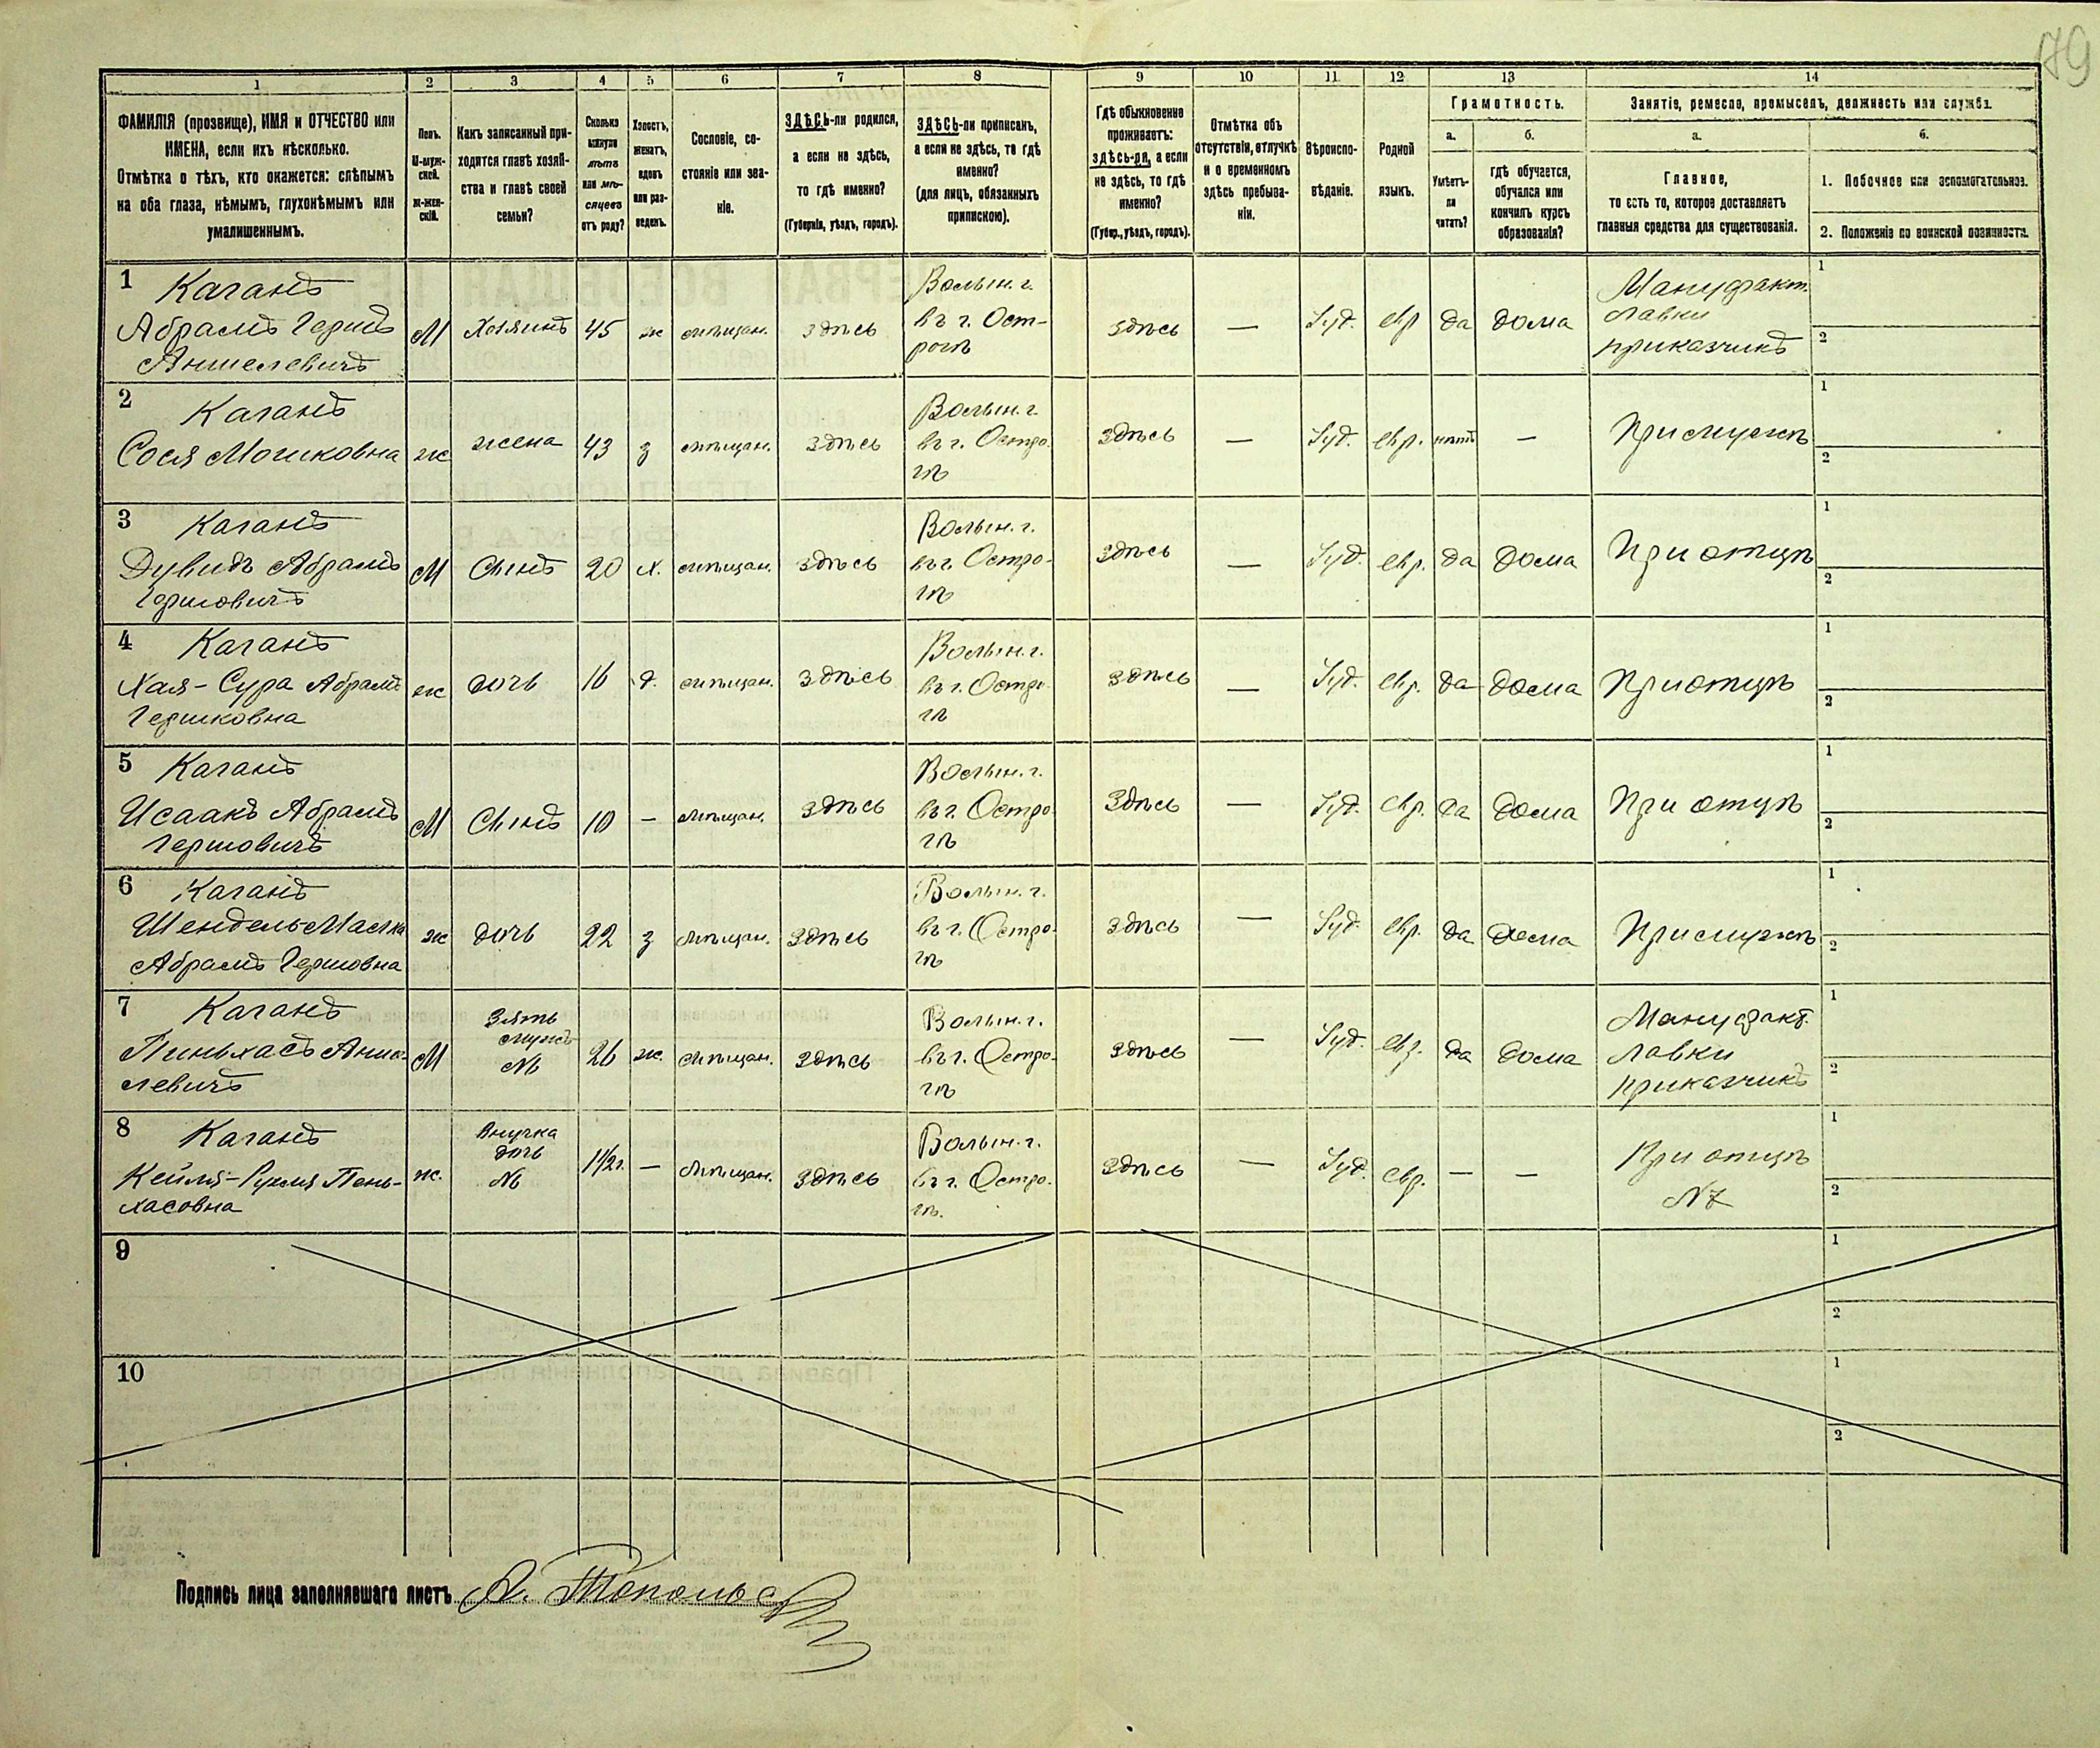 79
1 2 3 4 5 6 7 8 9 10 11 12 13 14
ФАМИЛІЯ (прозвище), ИМЯ и ОТЧЕСТВО или
ИМЕНА, если ихъ нѣсколько.
Отмѣтка о тѣхъ, кто окажется: слѣпымъ
на оба глаза, нѣмымъ, глухонѣмымъ или
умалишеннымъ.
Полъ.
М-муж-
ской.
Ж-жен-
скій.
Какъ записанный при-
ходится главѣ хозяй-
ства и главѣ своей
семьи?
Сколько
минуло
лѣтъ
или мѣ-
сяцевъ
отъ роду?
Холостъ,
женатъ,
вдовъ
или раз-
веденъ.
Сословіе, со-
стояніе или зва-
ніе.
ЗДѢСЬ-ли родился,
а если не здѣсь,
то гдѣ именно?
(Губернія, уѣздъ, городъ).
ЗДѢСЬ-ли приписанъ,
а если не здѣсь, то гдѣ
именно?
(для лицъ, обязанныхъ
припискою).
Гдѣ обыкновенно
проживаетъ:
здѣсь-ли, а если
не здѣсь, то гдѣ
именно?
(Губер., уѣздъ, городъ).
Отмѣтка объ
отсутствіи, отлучкѣ
и о временномъ
здѣсь пребыва-
ніи.
Вѣроиспо-
вѣданіе.
Родной
языкъ.
Грамотность.
а.
Умѣетъ-
ли
читать?
б.
гдѣ обучается,
обучался или
кончилъ курсъ
образованія?
Занятіе, ремесло, промыселъ, должность или служба.
а.
Главное,
то есть то, которое доставляетъ
главныя средства для существованія.
б.
1. Побочное или вспомогательное.
2. Положеніе по воинской повинности.
1 Каганъ
Абрамъ Гершъ
Аншелевичъ
М
Хозяинъ
45
ж
мѣщан.
здѣсь
Волын. г.
въ г. Ост-
рогѣ
здѣсь
—
Іуд.
евр
да
дома
Мануфакт.
лавки
приказчикъ
1
2
2 Каганъ
Сося Мошковна
ж
жена
43
з
мѣщан.
здѣсь
Волын. г.
въ г. Остро-
гѣ
здѣсь
—
Іуд.
евр.
нѣтъ
—
При мужѣ
1
2
3 Каганъ
Дувидъ Абрамъ
Гершовичъ
М
Сынъ
20
х.
мѣщан.
здѣсь
Волын. г.
въ г. Остро-
гѣ
здѣсь
—
Іуд.
евр.
да
дома
При отцѣ
1
2
4 Каганъ
Хая-Сура Абрамъ
Гершковна
ж
дочь
16
д.
мѣщан.
здѣсь
Волын. г.
въ г. Остро-
гѣ
здѣсь
—
Іуд.
евр.
да
дома
При отцѣ
1
2
5 Каганъ
Исаакъ Абрамъ
Гершовичъ
М
Сынъ
10
—
мѣщан.
здѣсь
Волын. г.
въ г. Остро-
гѣ
здѣсь
—
Іуд.
евр.
да
дома
При отцѣ
1
2
6 Каганъ
Шендель-Малка
Абрамъ Гершовна
ж
дочь
22
з
мѣщан.
здѣсь
Волын. г.
въ г. Остро-
гѣ
здѣсь
—
Іуд.
евр.
да
дома
При мужѣ
1
2
7 Каганъ
Пиньхасъ Анше-
левичъ
М
Зять
мужъ
№
26
ж.
мѣщан.
здѣсь
Волын. г.
въ г. Остро-
гѣ
здѣсь
—
Іуд.
евр.
да
дома
Мануфакт.
лавки
приказчикъ
1
2
8 Каганъ
Кейля-Рухля Пень-
хасовна
ж.
Внучка
дочь
№
1 1/2 г.
—
мѣщан.
здѣсь
Волын. г.
въ г. Остро-
гѣ.
здѣсь
—
Іуд.
евр.
—
—
При отцѣ
№ 7
1
2
9
1
2
10
1
2
Подпись лица заполнявшаго листъ